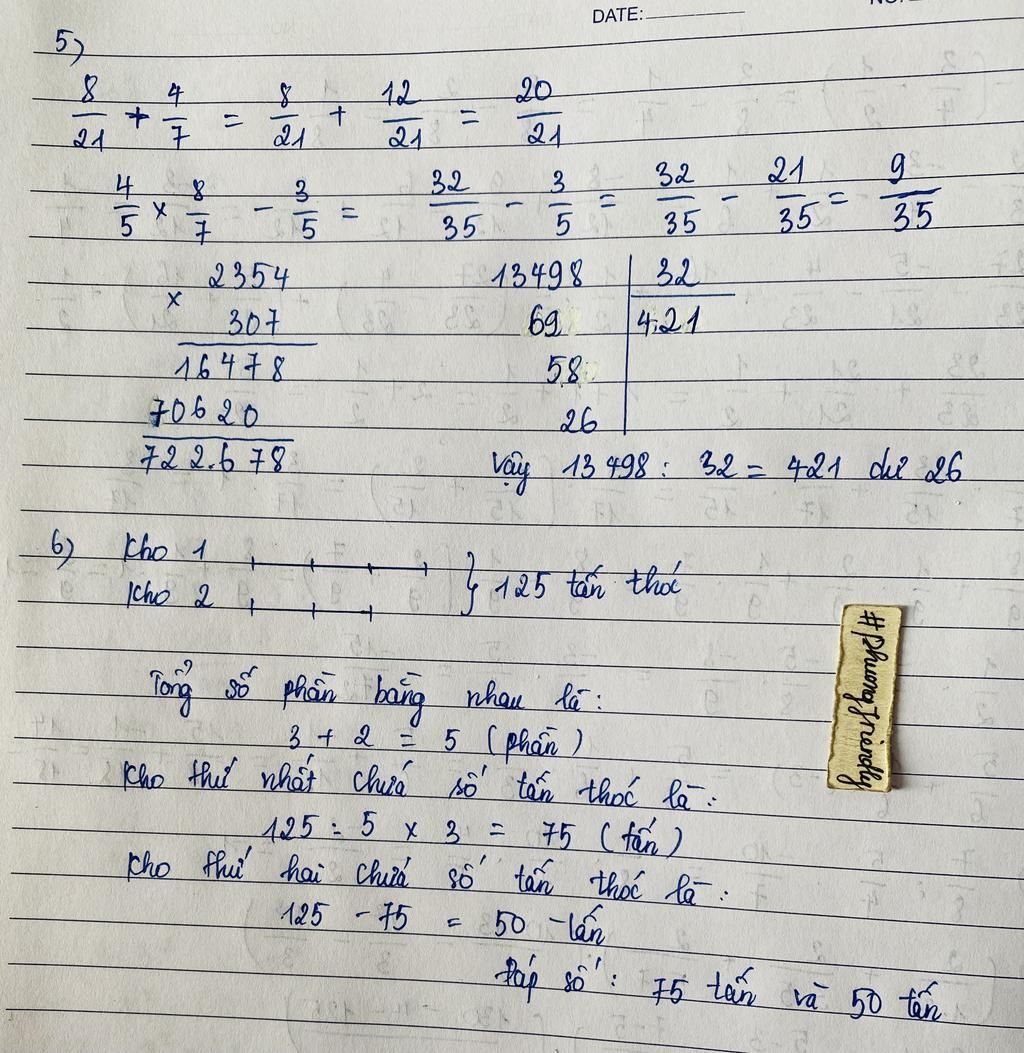 DATE:
5)
8/21 + 4/7 = 8/21 + 12/21 = 20/21
4/5 x 8/7 - 3/5 = 32/35 - 3/5 = 32/35 - 21/35 = 9/35
x 2354
307
16478
70620
722.678
13498 32
69 421
58
26
Vậy 13498 : 32 = 421 dư 26
6) Kho 1
Kho 2
} 125 tấn thóc
Tổng số phần bằng nhau là:
3 + 2 = 5 (phần)
Kho thứ nhất chứa số tấn thóc là:
125 : 5 x 3 = 75 (tấn)
Kho thứ hai chứa số tấn thóc là:
125 - 75 = 50 tấn
Đáp số: 75 tấn và 50 tấn
#phuongfriendly